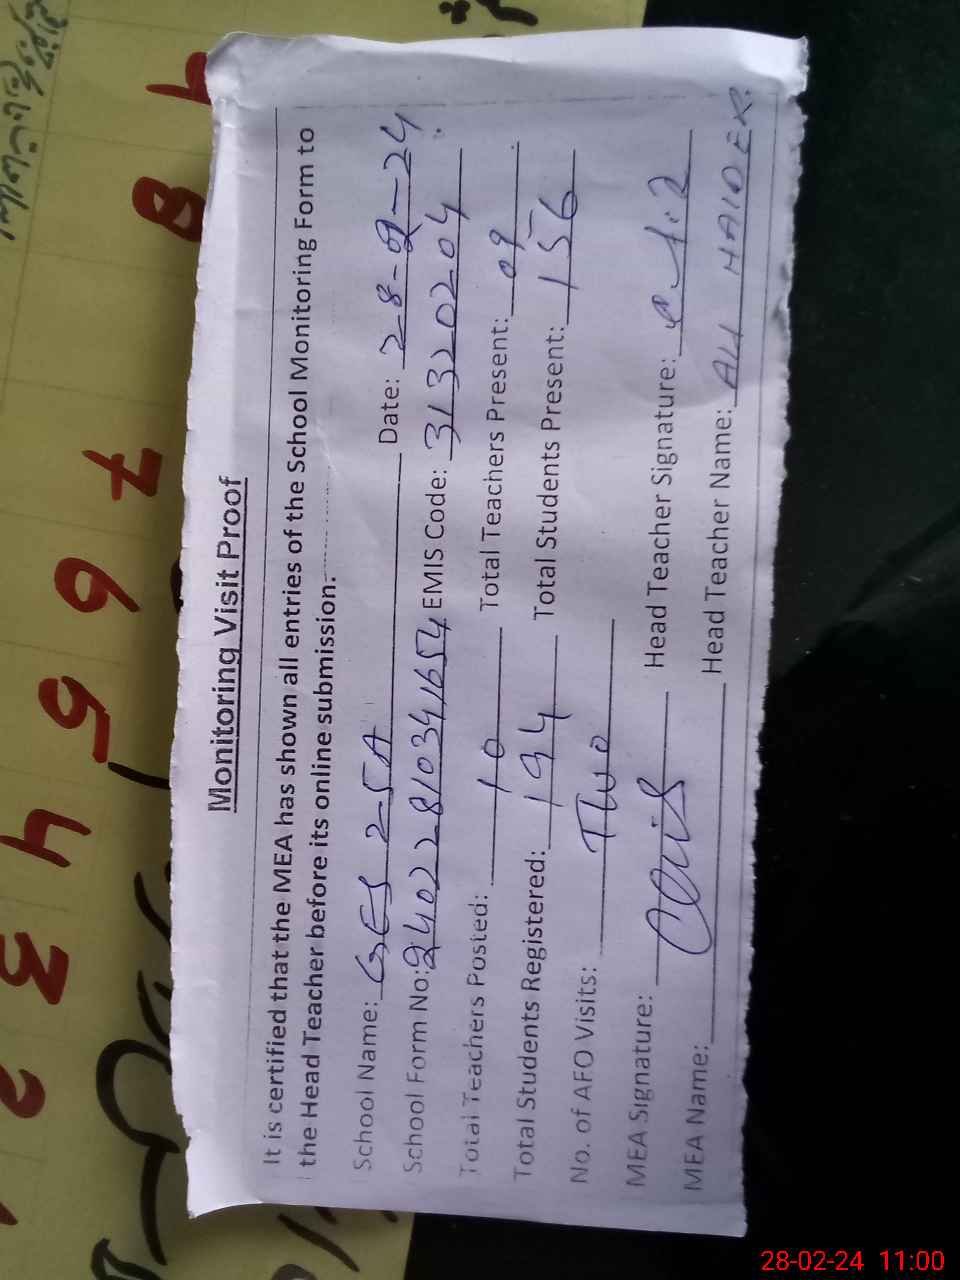 Monitoring Visit Proof
It is certified that the MEA has shown all entries of the School Monitoring Form to
the Head Teacher before its online submission.
School Name: GES 2-5A Date: 28-02-24
School Form No: 24022810341654 EMIS Code: 31320204
Total Teachers Posted: 10 Total Teachers Present: 09
Total Students Registered: 194 Total Students Present: 156
No. of AFO Visits: Two
MEA Signature: Head Teacher Signature:
MEA Name: Head Teacher Name: ALI HAIDER
2 3 4 5 6 7 8 9
28-02-24 11:00